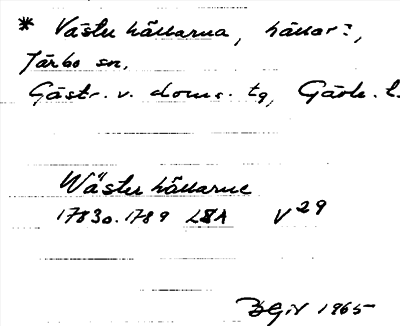 * Västu hällarna, hällar:,
Järbo sn.
Gästr. v. doms. tg, Gävle. l.
Wästu hällarne
1783 o. 1789 LSA V 29
BGN 1965